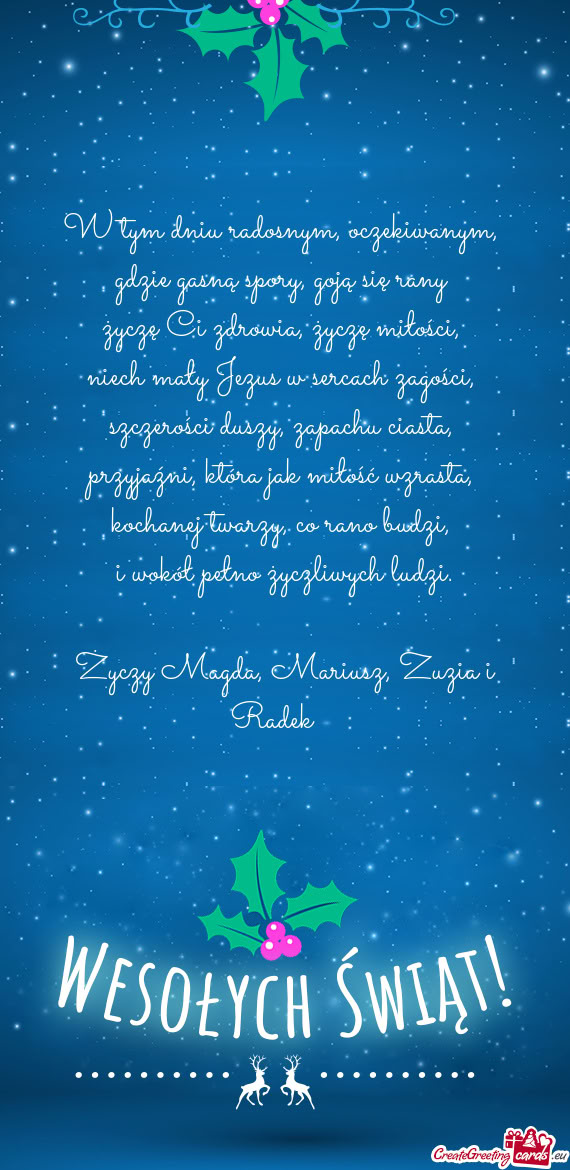 W tym dniu radosnym, oczekiwanym,
gdzie gasną spory, goją się rany
życzę Ci zdrowia, życzę miłości,
niech mały Jezus w sercach zagości,
szczerości duszy, zapachu ciasta,
przyjaźni, która jak miłość wzrasta,
kochanej twarzy, co rano budzi,
i wokół pełno życzliwych ludzi.
Życzy Magda, Mariusz, Zuzia i
Radek
Wesołych Świąt!
CreateGreeting cards .eu